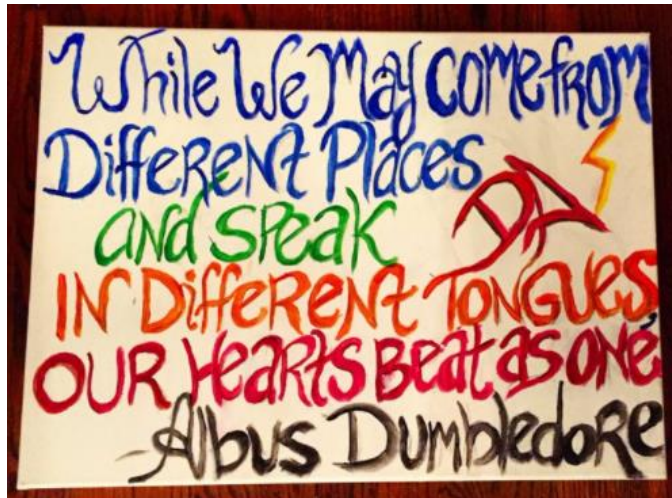 While We May come from
DiffeReNt Places
aNd speak
DA
IN DiffeReNt ToNGUes,
OUR HeaRts Beat as oNe
-Albus Dumbledore